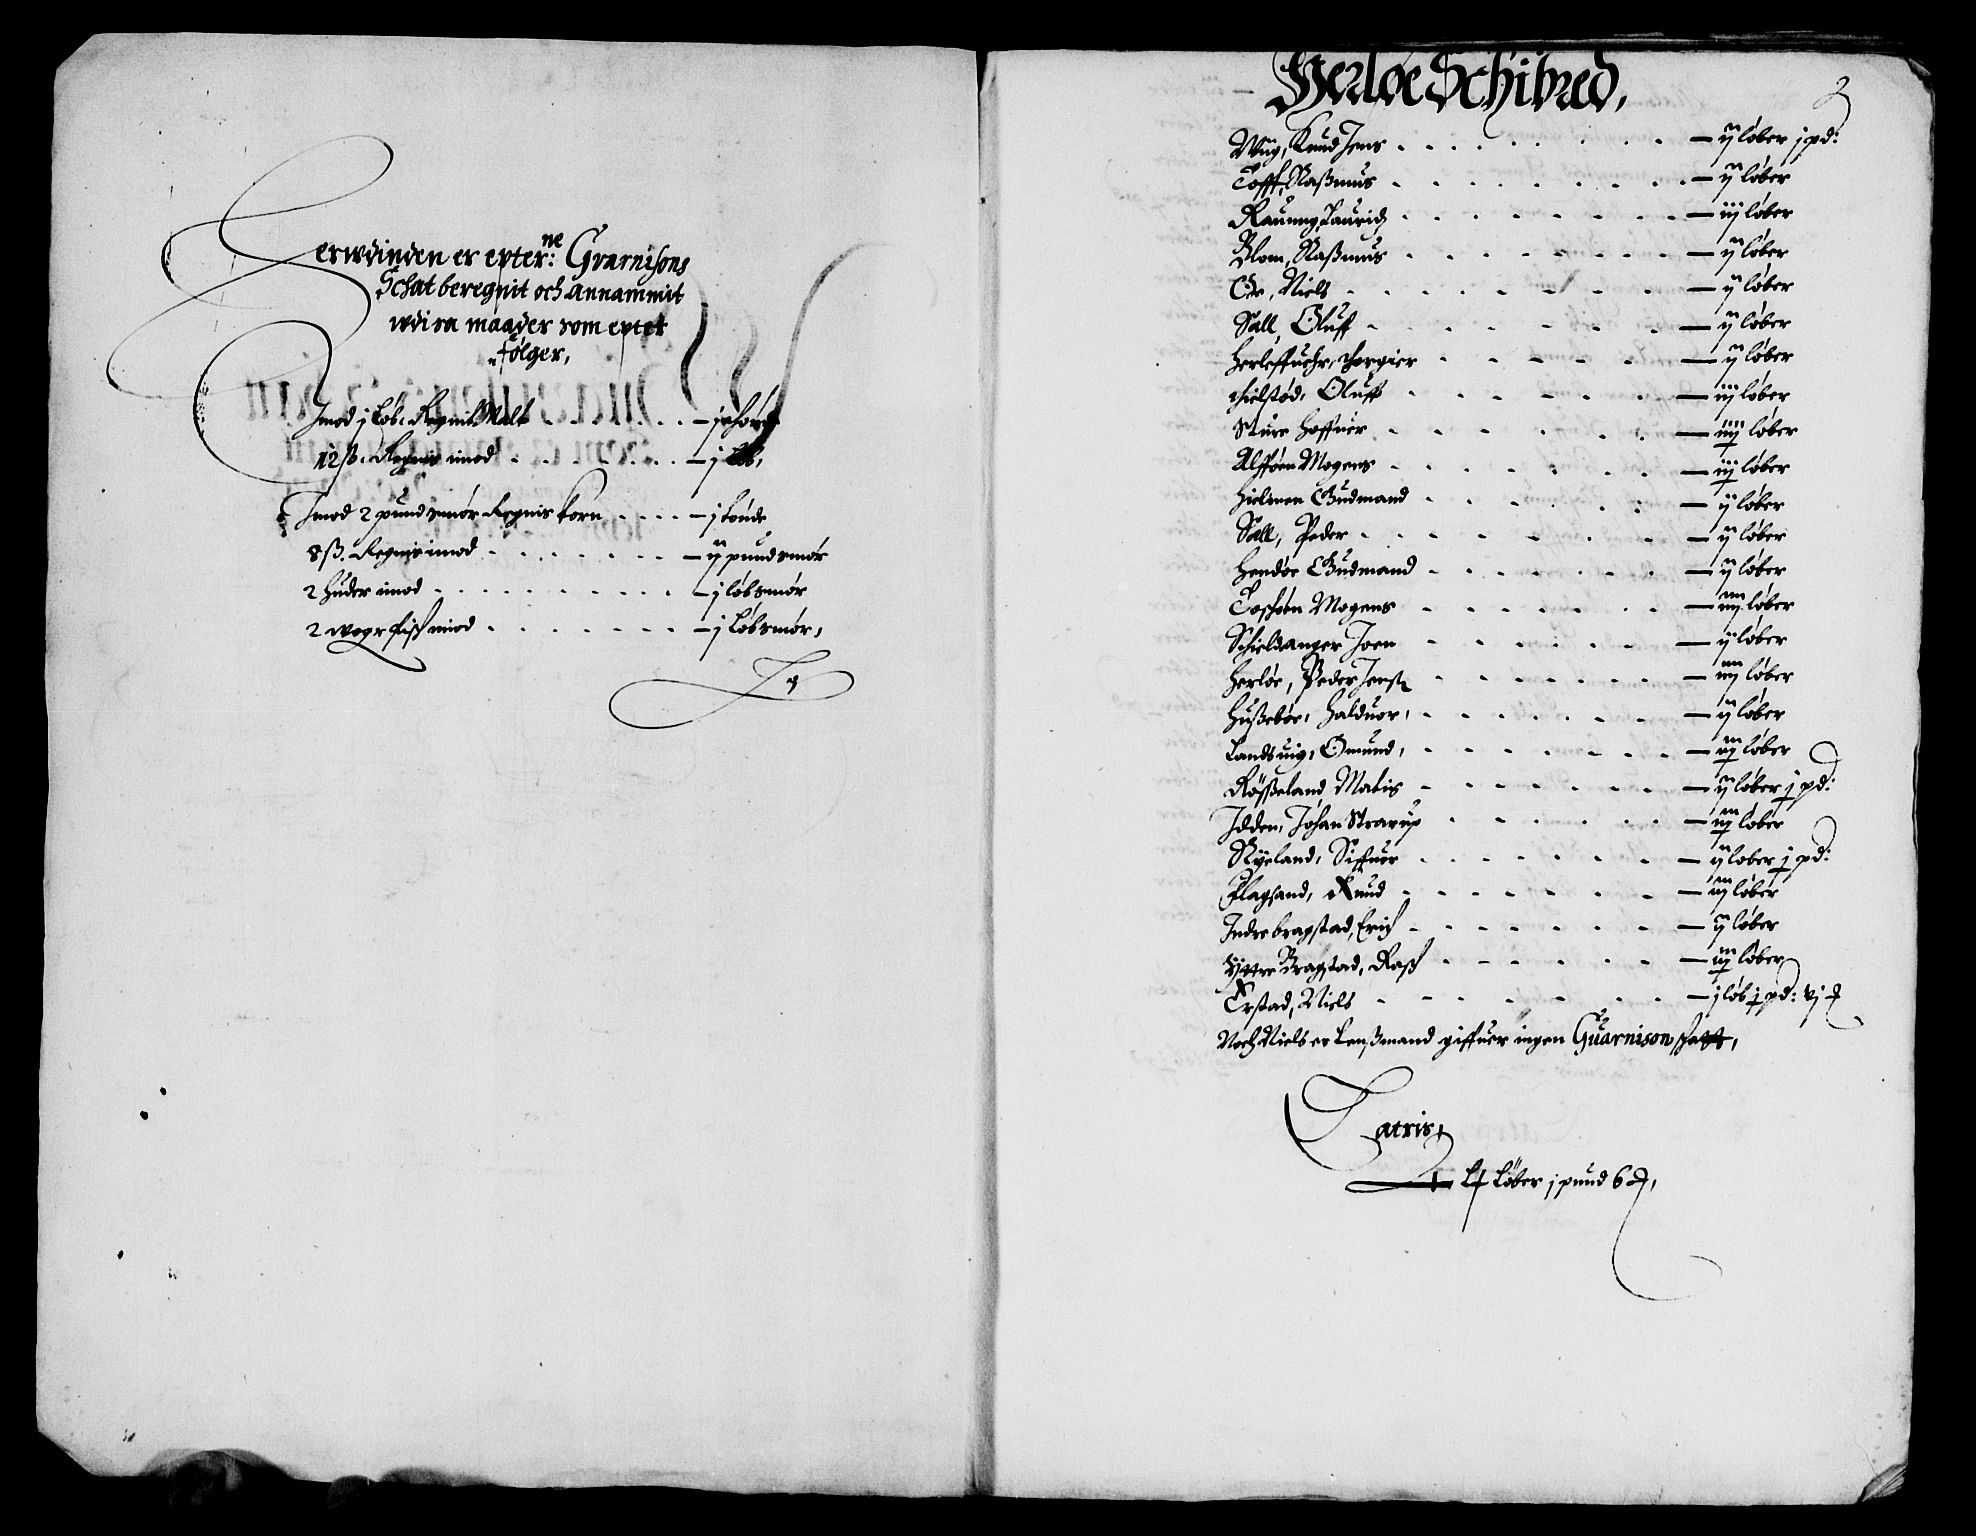 Herwdinden er epter:ne Gvarnisons
Schat beregnit och annammit
wdi sa maader som epter
følger,
Imod j Løb: Regnis Malt - j
12 ß. Regnis imod - j Løb,
Imod 2 pund smør Regnis korn - j tønde
8 ß. Regnis imod - ij pund smør
2 huder imod - j løb smør
2 woger fisk imod - j Løb smør,
Herløe Schibred,
2
Wiig, Knud Jens - ij løber j pd:
Tofft, Raßmus - ij løber
Rauung Lauridz - iij løber
Blom, Raßmus - ij løber
Ode, Niels - ij løber
Sall, Oluff - ij løber
Herleffuehr, Thorgier - ij løber
Thielstød, Oluff - iij løber
Sture Hoffuer - iiij løber
Alfføen Mogens - iij løber
Hielmen Gudmand - ij løber
Sall, Peder - ij løber
Hendøe Gudmand - ij løber
Toshøen Mogens - iij løber
Schieldanger Joen - ij løber
Herløe, Peder Jensen - iij løber
Hußebøe, Halduor, - ij løber
Landsuig, Omund, - iij løber
Røßeland Matis - ij løber j pd:
Idden, Johan Strarup - iij løber
Ryeland, Siffuer - ij løber j pd:
Flagsand, Knud - iij løber
Indre bragstad, Erich - ij løber
Yttre Bragstad, Rasch - iij løber
Erstad, Niels - j løb j pd: vj
Noch Niels er Lenßmand giffuer ingen Guarnison skatt,
Latris,
Lj Løber j pund 6